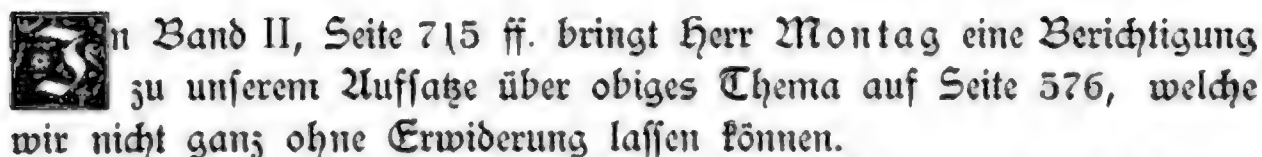 In Band II, Seite 715 ff. bringt Herr Montag eine Berichtigung
zu unserem Aufsatze über obiges Thema auf Seite 576, welche
wir nicht ganz ohne Erwiderung lassen können.